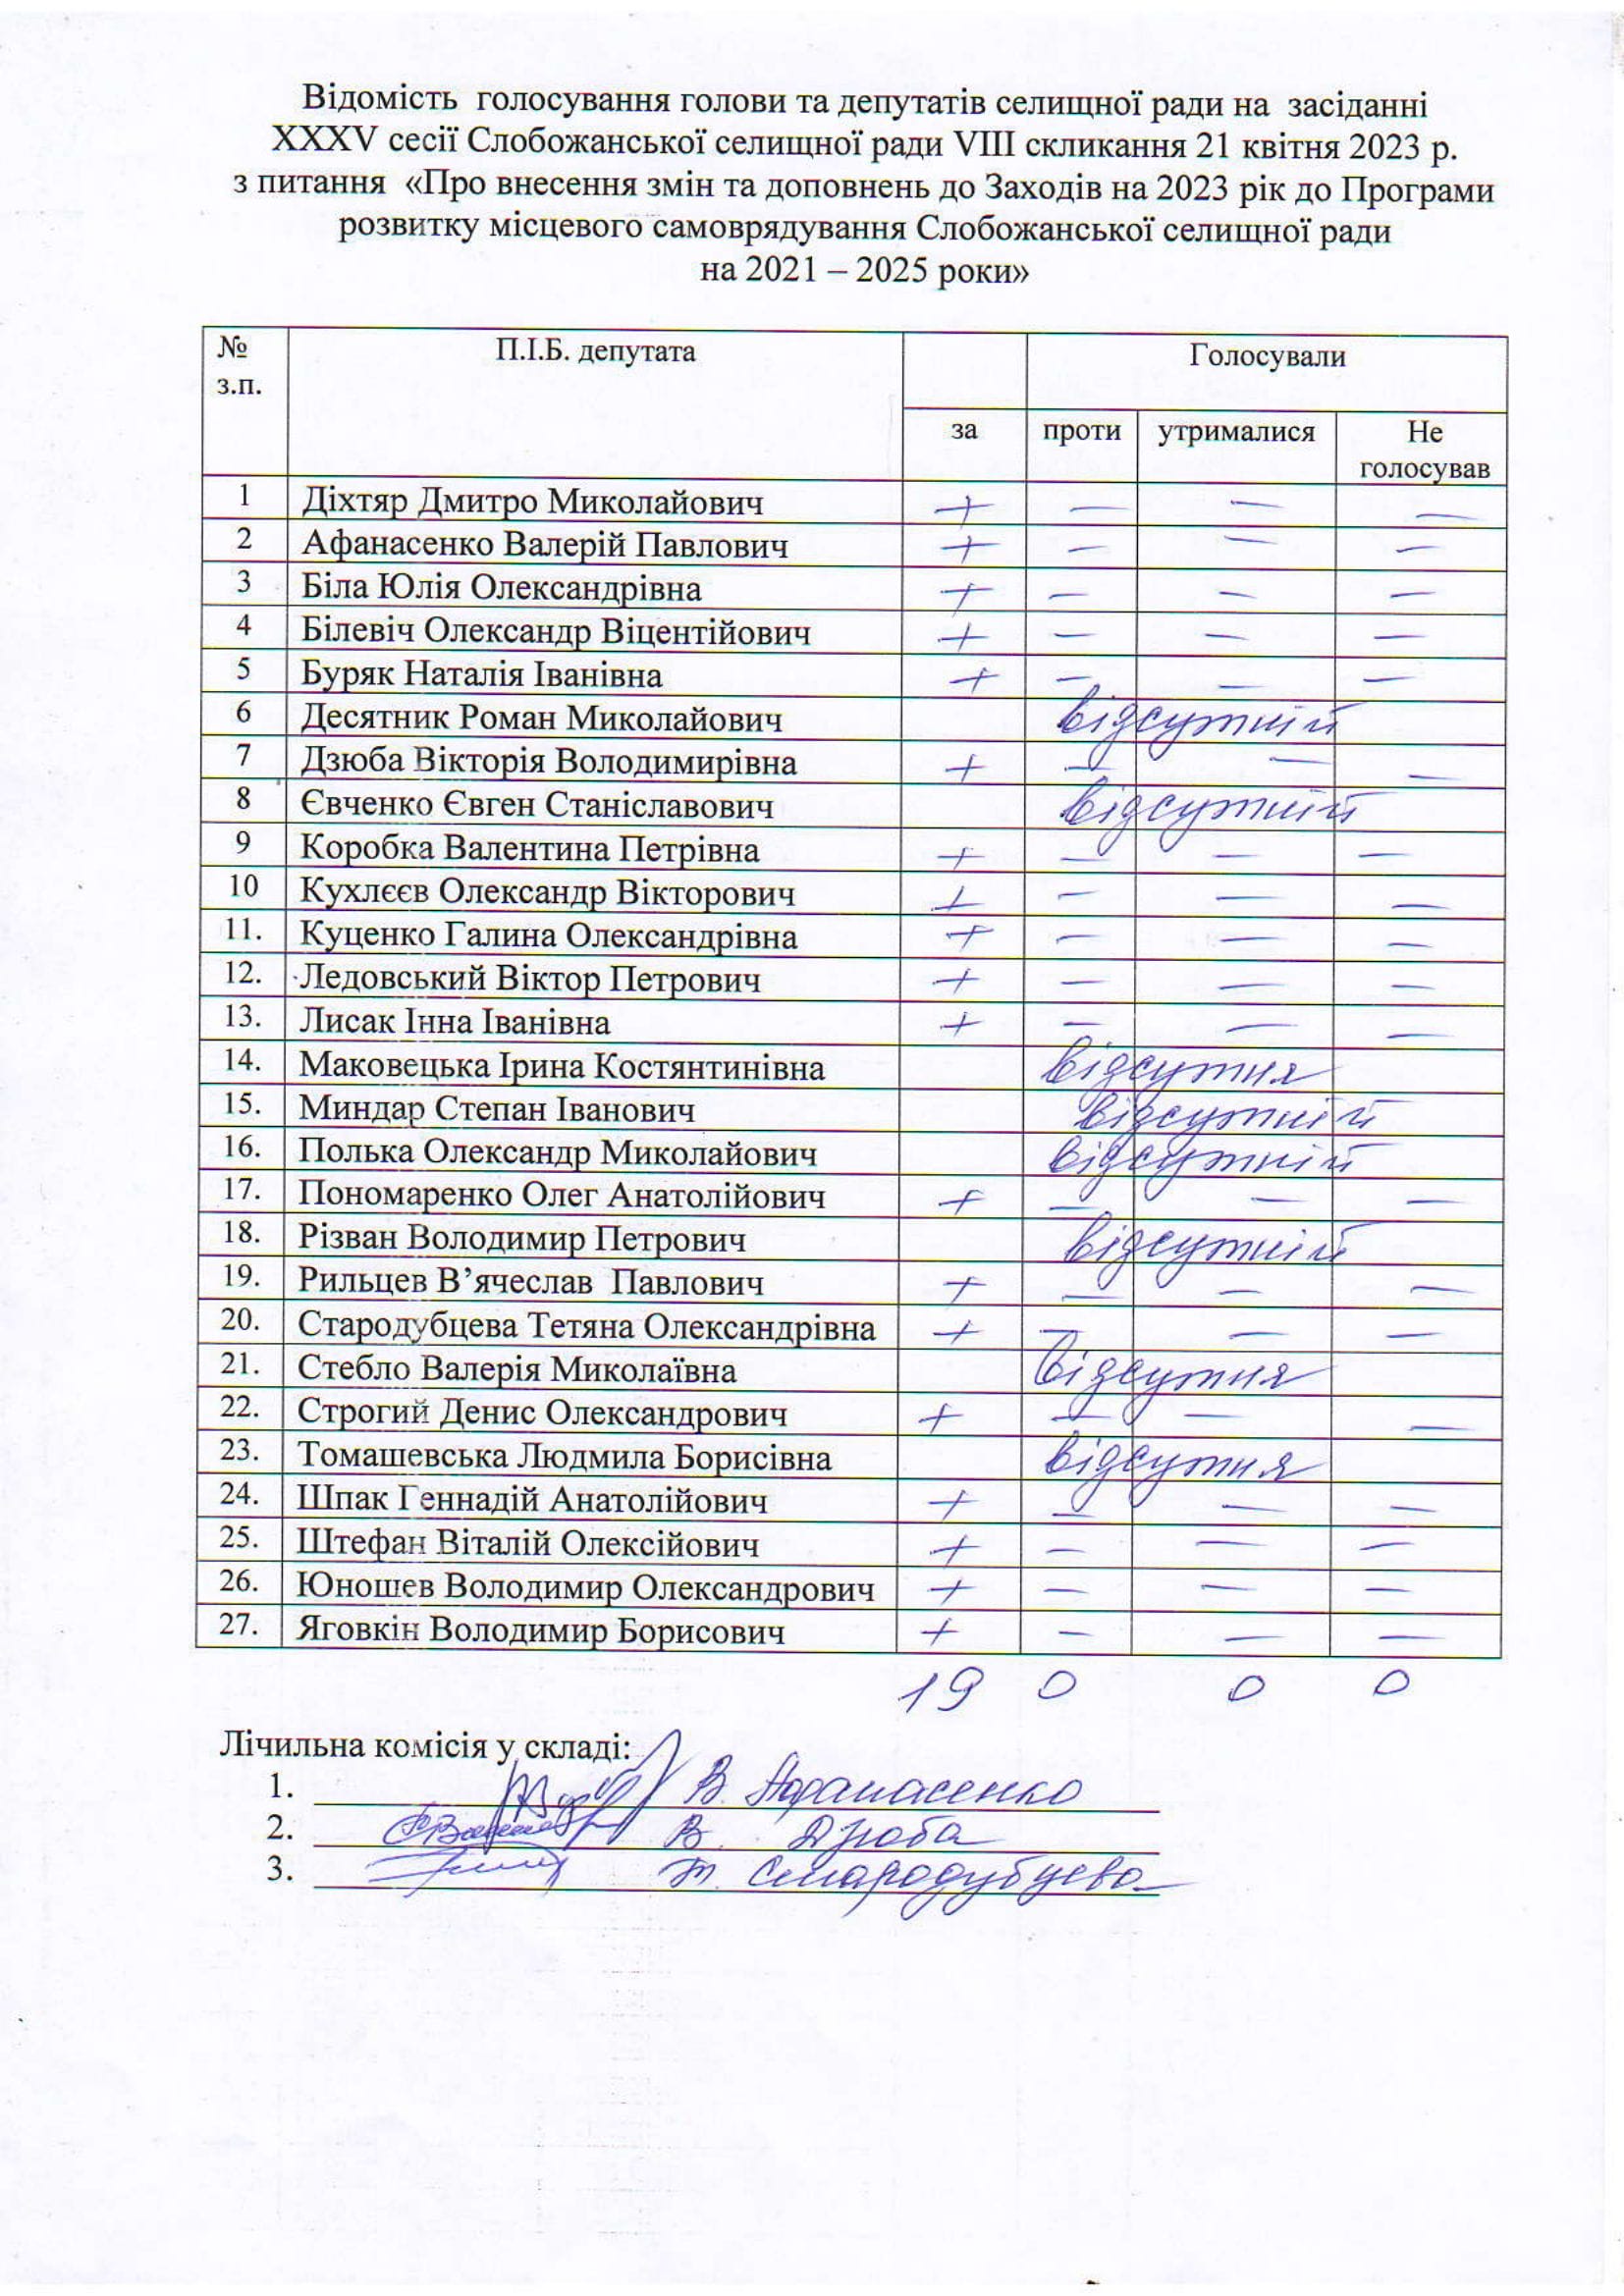 Відомість голосування голови та депутатів селищної ради на засіданні
XXXV сесії Слобожанської селищної ради VIII скликання 21 квітня 2023 р.
з питання «Про внесення змін та доповнень до Заходів на 2023 рік до Програми
розвитку місцевого самоврядування Слобожанської селищної ради
на 2021 – 2025 роки»
№ з.п. П.І.Б. депутата Голосували
за проти утрималися Не голосував
1 Діхтяр Дмитро Миколайович + — — —
2 Афанасенко Валерій Павлович + — — —
3 Біла Юлія Олександрівна + — — —
4 Білевіч Олександр Віцентійович + — — —
5 Буряк Наталія Іванівна + — — —
6 Десятник Роман Миколайович відсутній
7 Дзюба Вікторія Володимирівна + — — —
8 Євченко Євген Станіславович відсутній
9 Коробка Валентина Петрівна + — — —
10 Кухлєєв Олександр Вікторович + — — —
11. Куценко Галина Олександрівна + — — —
12. Ледовський Віктор Петрович + — — —
13. Лисак Інна Іванівна + — — —
14. Маковецька Ірина Костянтинівна відсутня
15. Миндар Степан Іванович відсутній
16. Полька Олександр Миколайович відсутній
17. Пономаренко Олег Анатолійович + — — —
18. Різван Володимир Петрович відсутній
19. Рильцев В’ячеслав Павлович + — — —
20. Стародубцева Тетяна Олександрівна + — — —
21. Стебло Валерія Миколаївна відсутня
22. Строгий Денис Олександрович + — — —
23. Томашевська Людмила Борисівна відсутня
24. Шпак Геннадій Анатолійович + — — —
25. Штефан Віталій Олексійович + — — —
26. Юношев Володимир Олександрович + — — —
27. Яговкін Володимир Борисович + — — —
19 0 0 0
Лічильна комісія у складі:
1. В. Афанасенко
2. В. Дзюба
3. Т. Стародубцева